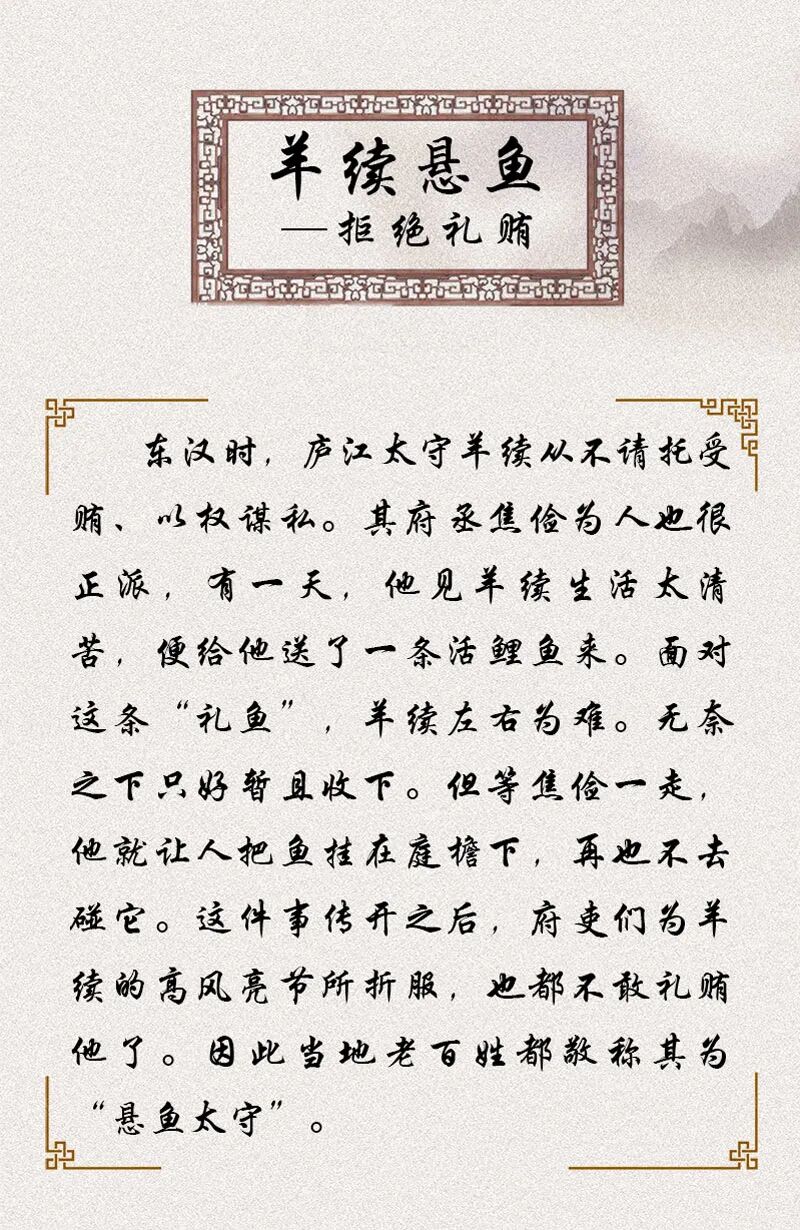 羊续悬鱼
—拒绝礼贿
东汉时，庐江太守羊续从不请托受
贿、以权谋私。其府丞焦俭为人也很
正派，有一天，他见羊续生活太清
苦，便给他送了一条活鲤鱼来。面对
这条“礼鱼”，羊续左右为难。无奈
之下只好暂且收下。但等焦俭一走，
他就让人把鱼挂在庭檐下，再也不去
碰它。这件事传开之后，府吏们为羊
续的高风亮节所折服，也都不敢礼贿
他了。因此当地老百姓都敬称其为
“悬鱼太守”。